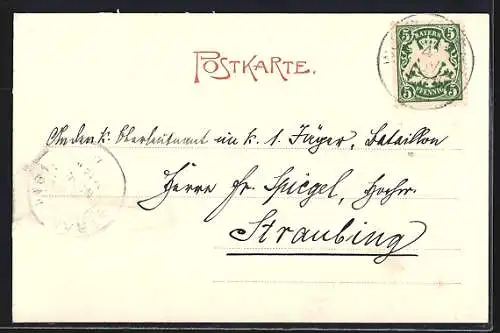 POSTKARTE.
5 BAYERN 5
5 PFENNIG 5
An den k. Oberleutnant im k. 1. Jäger, Bataillon
Herrn Fr. Spiegel, Hochw.
Straubing